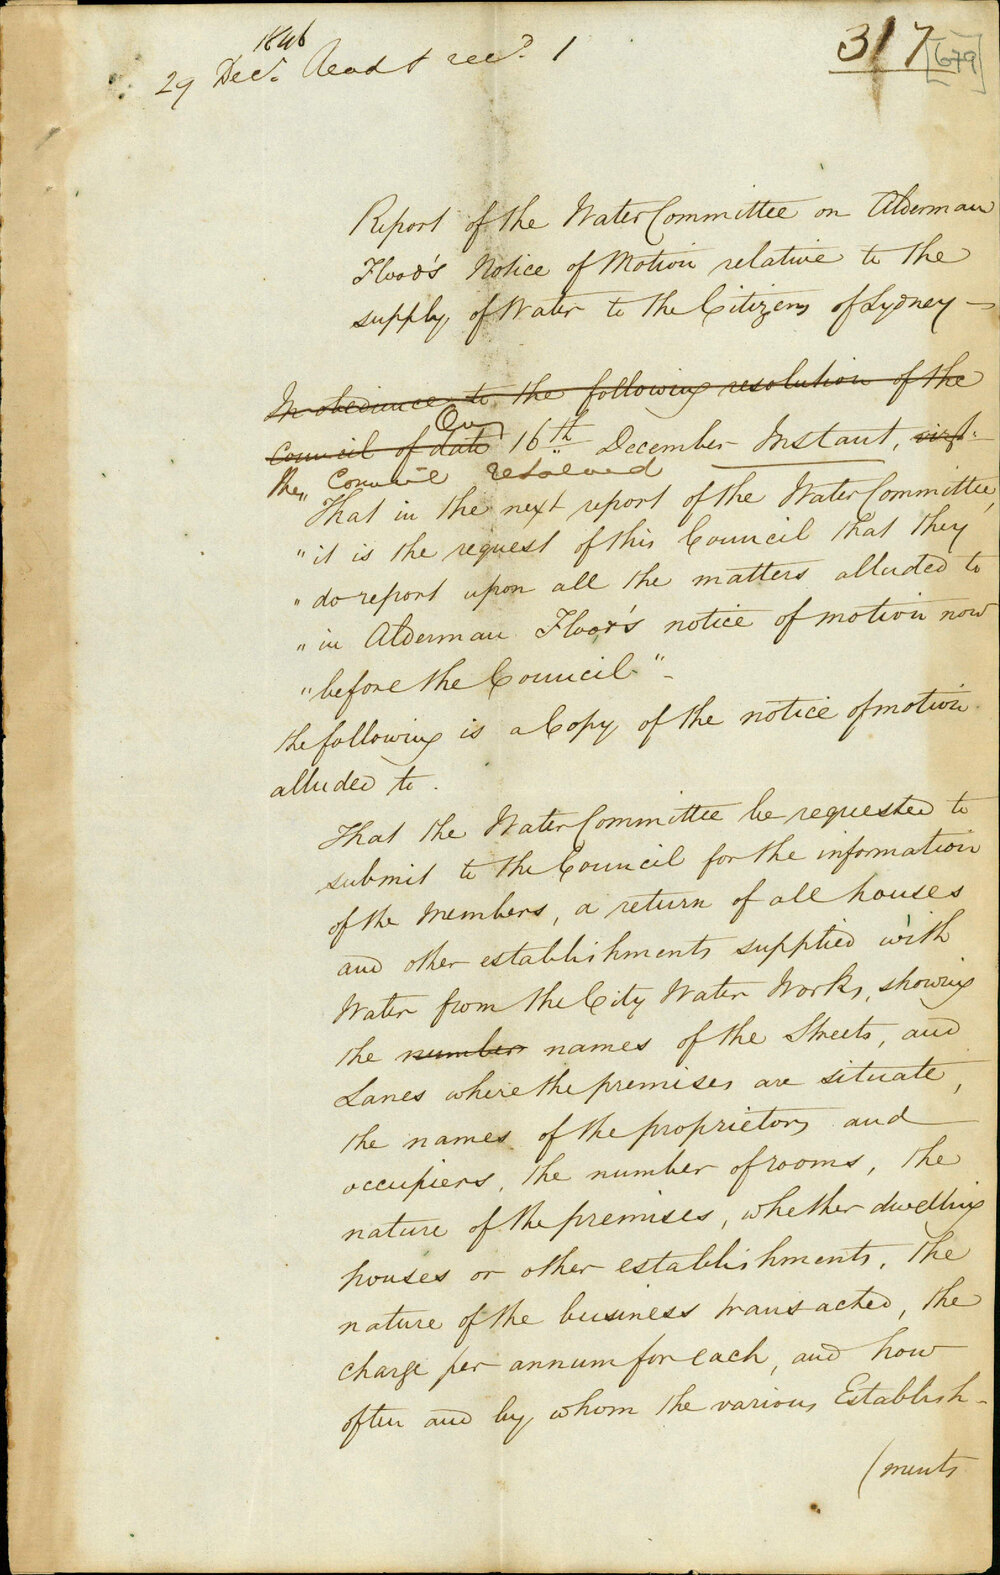 1846
29 Decr. Read & recd. 1
317
[679]
Report of the Water Committee on Alderman
Flood's Notice of Motion relative to the
supply of Water to the Citizens of Sydney —
In obedience to the following resolution of the
Council of date On 16th December Instant, vizt.
the Council resolved
"That in the next report of the Water Committee,
"it is the request of this Council that they
"do report upon all the matters alluded to
"in Alderman Flood's notice of motion now
"before the Council" -
the following is a Copy of the notice of motion
alluded to.
That the Water Committee be requested to
submit to the Council for the information
of the Members, a return of all houses
and other establishments supplied with
Water from the City Water Works, showing
the number names of the Streets, and
Lanes where the premises are situate,
the names of the proprietors and
occupiers, the number of rooms, the
nature of the premises, whether dwelling
houses or other establishments, the
nature of the business transacted, the
charge per annum for each, and how
often and by whom the various Establish-
(ments